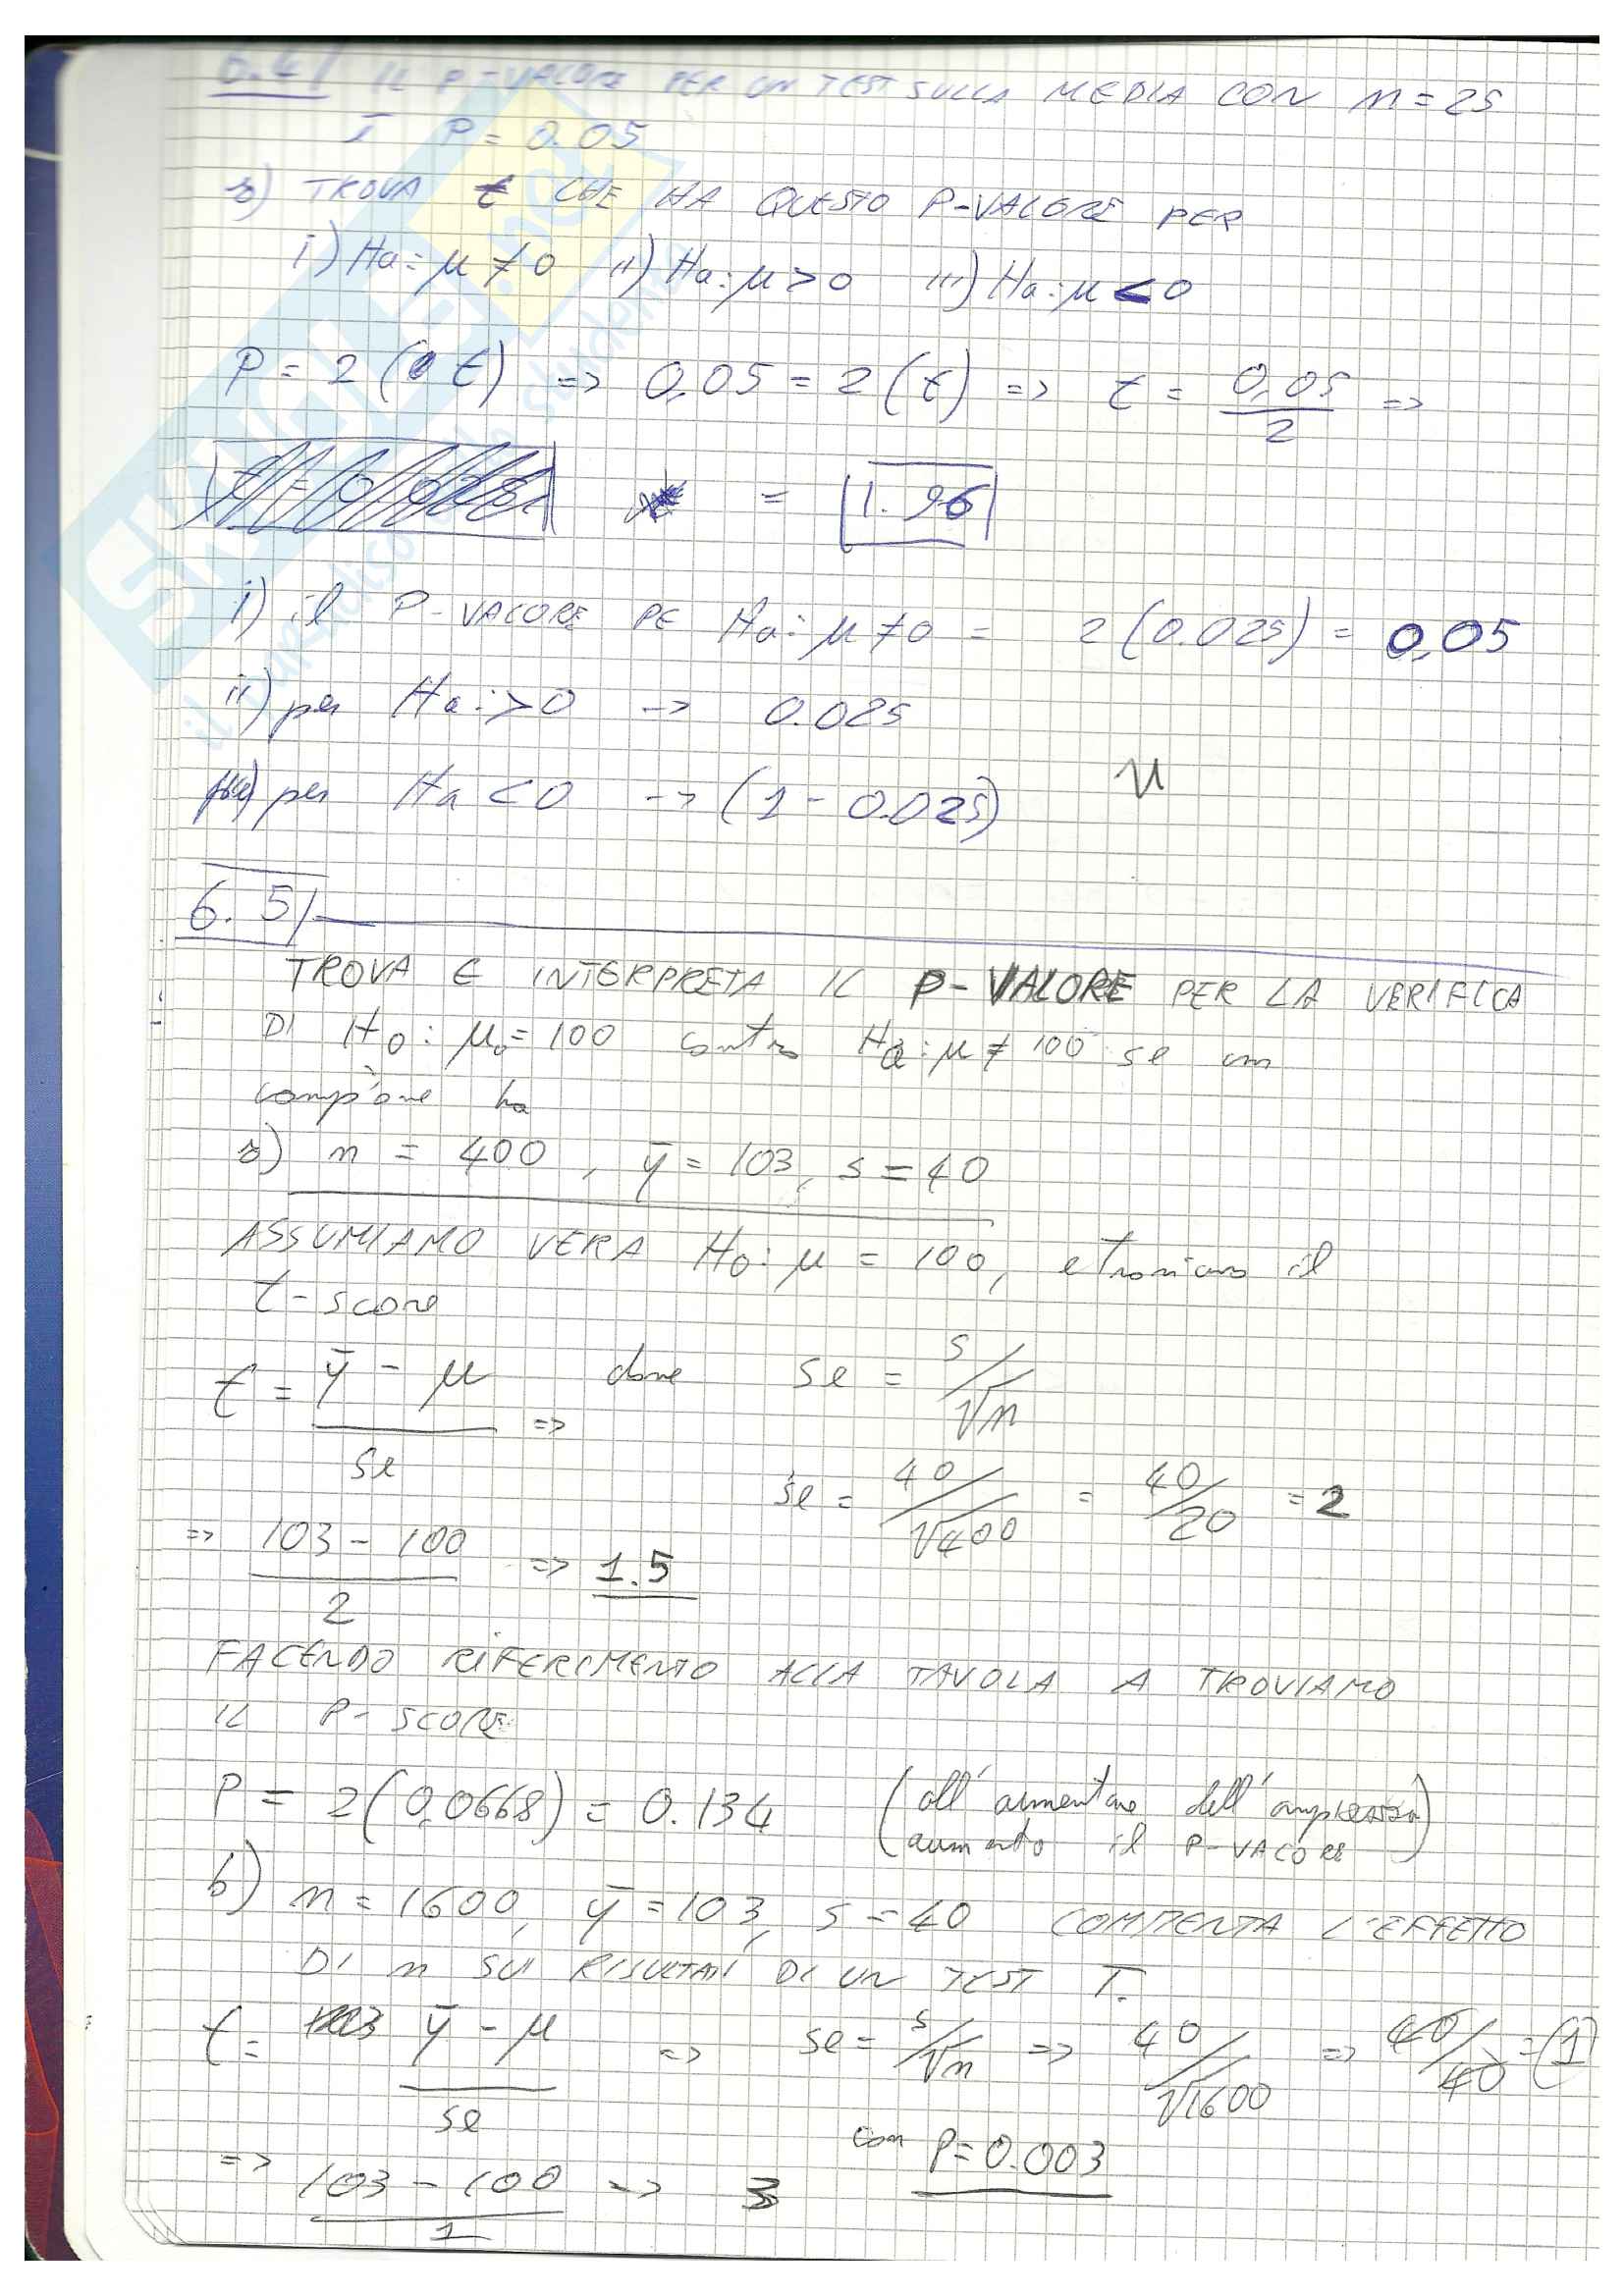 6.4 / IL P-VALORE PER UN TEST SULLA MEDIA CON n = 25
P = 0.05
a) TROVA t CHE HA QUESTO P-VALORE PER
i) Ha: μ ≠ 0 ii) Ha: μ > 0 iii) Ha: μ < 0
P = 2 ( t) => 0,05 = 2 (t) => t = 0,05 / 2 =>
= 1.96
i) il P-VALORE PE Ha: μ ≠ 0 = 2 (0.025) = 0,05
ii) per Ha: > 0 -> 0.025
per Ha < 0 -> (1 - 0.025)
6. 5 /
TROVA E INTERPRETA IL P-VALORE PER LA VERIFICA
DI H0: μ0 = 100 contro Ha: μ ≠ 100 se un
campione ha
a) n = 400, ȳ = 103, s = 40
ASSUMIAMO VERA H0: μ = 100, e troviamo il
t-score
t = ȳ - μ / se => dove se = s / √n
se = 40 / √400 = 40 / 20 = 2
=> 103 - 100 / 2 => 1.5
FACENDO RIFERIMENTO ALLA TAVOLA A TROVIAMO
IL P-SCORE
P = 2 (0,0668) = 0.134 (all'aumentare dell'ampiezza
aumento il P-VALORE)
b) n = 1600, ȳ = 103, s = 40 COMMENTA L'EFFETTO
DI n SUI RISULTATI DI UN TEST T.
t = ȳ - μ / se => se = s / √n => 40 / √1600 => 40 / 40 = (1)
=> 103 - 100 / 1 => 3 con P = 0.003